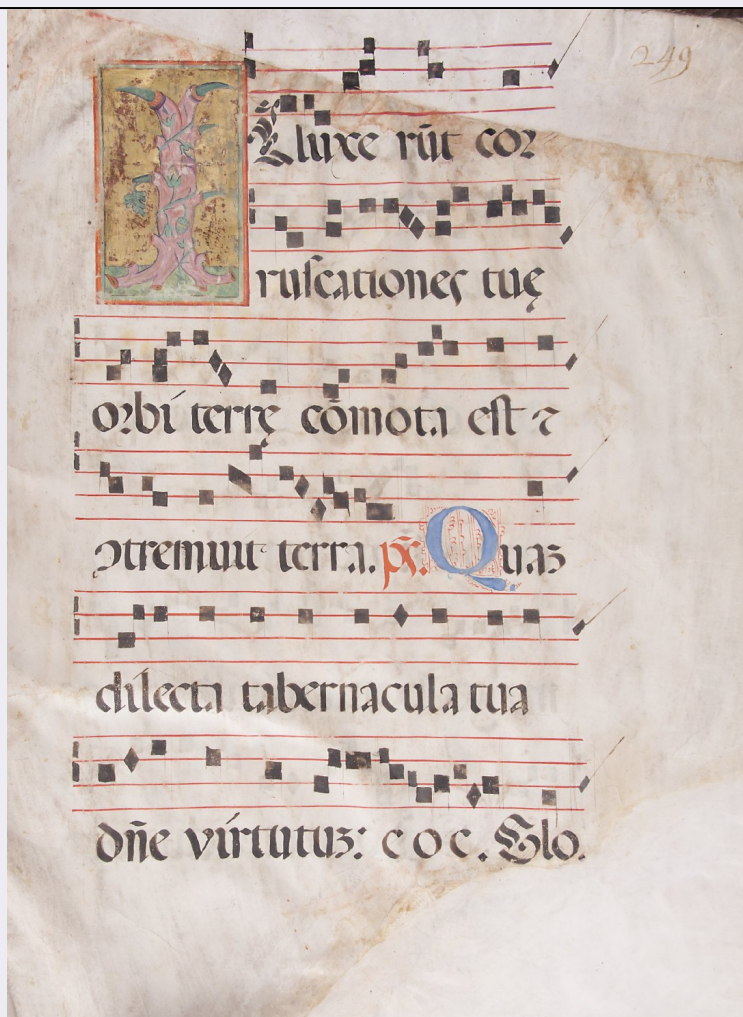 249
Illuxe rūt cor
ruscationes tuę
orbi terrę cōmota est ⁊
ↄtremuit terra. ps̄. Quaȝ
dilecta tabernacula tua
dn̄e virtutuȝ: e o e. Glo.